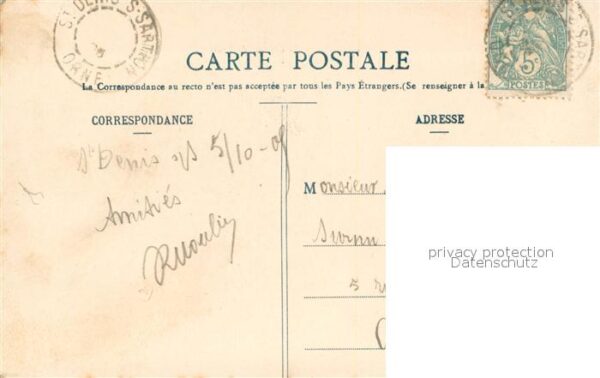 ST DENIS-S-SARTHON
ORNE
CARTE POSTALE
5c
POSTES
La Correspondance au recto n'est pas acceptée par tous les Pays Étrangers.(Se renseigner à la
CORRESPONDANCE
ADRESSE
St Denis s/S 5/10-05
Amitiés
Monsieur
5
privacy protection
Datenschutz